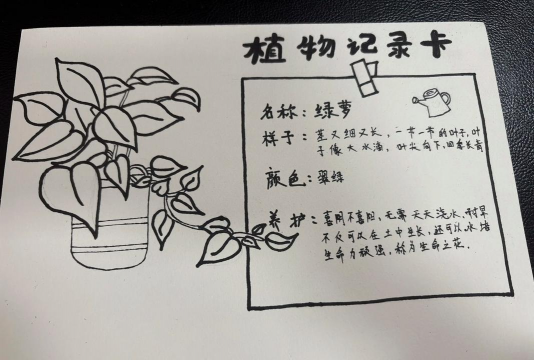 植物记录卡
名称：绿萝
样子：茎又细又长，一节一节的叶子，叶
子像大水滴，叶尖向下，四季长青
颜色：翠绿
养护：喜阴不喜阳，无需天天浇水，耐旱
不仅可以在土中生长，还可以水培
生命力极强，称为生命之花。